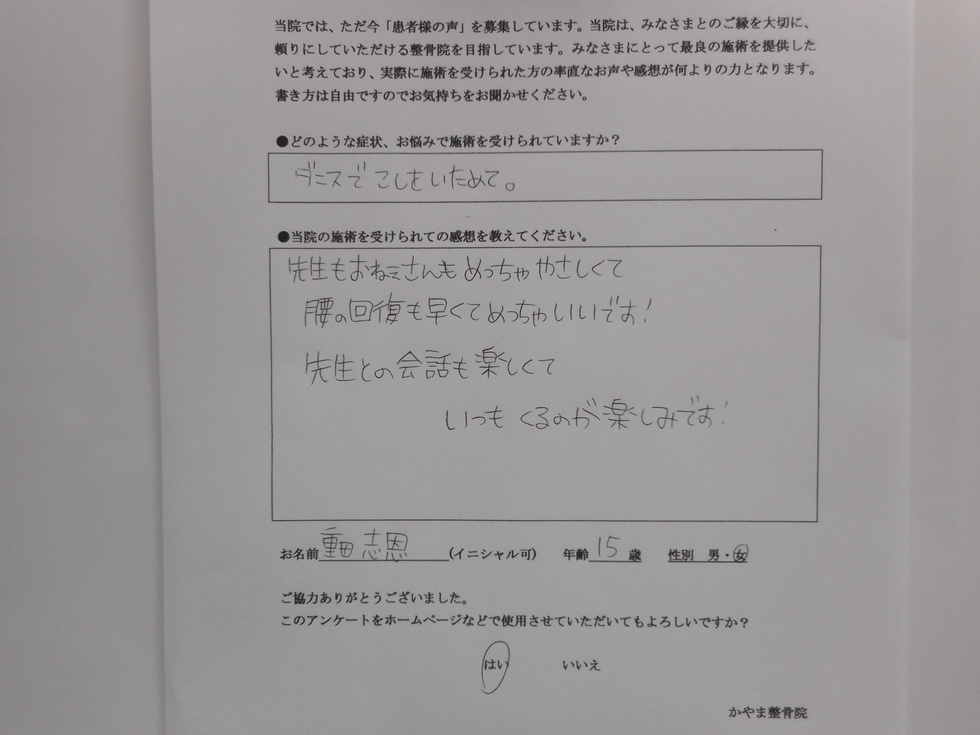 当院では、ただ今「患者様の声」を募集しています。当院は、みなさまとのご縁を大切に、
頼りにしていただける整骨院を目指しています。みなさまにとって最良の施術を提供した
いと考えており、実際に施術を受けられた方の率直なお声や感想が何よりの力となります。
書き方は自由ですのでお気持ちをお聞かせください。
●どのような症状、お悩みで施術を受けられていますか？
ダンスでこしをいためて。
●当院の施術を受けられての感想を教えてください。
先生もおねぇさんもめっちゃやさしくて
腰の回復も早くてめっちゃいいです!
先生との会話も楽しくて
いつもくるのが楽しみです!
お名前 重田 志恩 (イニシャル可) 年齢 15 歳 性別 男・女
ご協力ありがとうございました。
このアンケートをホームページなどで使用させていただいてもよろしいですか？
はい いいえ
かやま整骨院